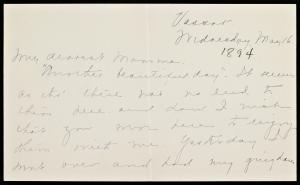 Vassar
Wednesday May 16
1894
My dearest Mamma.
"Another beautiful day". It seems
as tho' there was no end to
them here and how I wish
that you were here to enjoy
them with me. Yesterday I
was over and had my